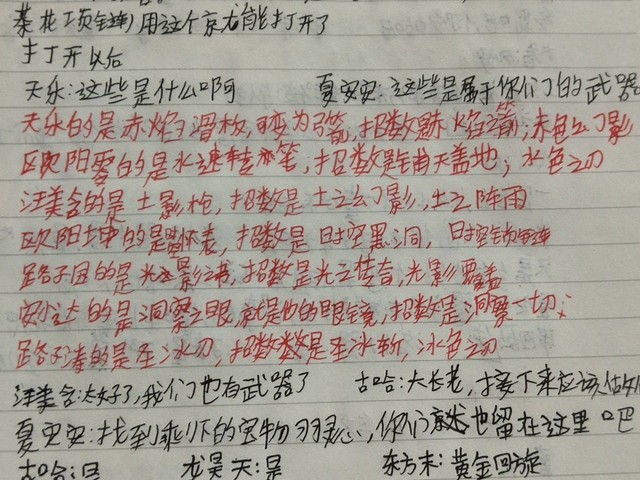 菜花项链)用这个就能打开了
打开以后
天乐:这些是什么啊 夏安安:这些是属于你们的武器
天乐的是赤焰滑板,可变为弓箭,招数赤焰之箭,赤色幻影
欧阳雪的是水速转变笔,招数是铺天盖地;水色之刃
汪美含的是土影枪,招数是土之幻影,土之阵雨
欧阳坤的是怀表,招数是时空黑洞,时空锁链
路子团的是光之影之书,招数是光之传奇,光影覆盖
安达的是洞察之眼,就是他的眼镜,招数是洞察一切
路子涛的是至冰刀,招数数是至冰斩,冰色之刃
汪美含:太好了,我们也有武器了 古哈:大长老,接下来应该
夏安安:找到剩下的宝物,你们也留在这里吧
古哈:是 龙昊天:是 东方末:黄金回旋